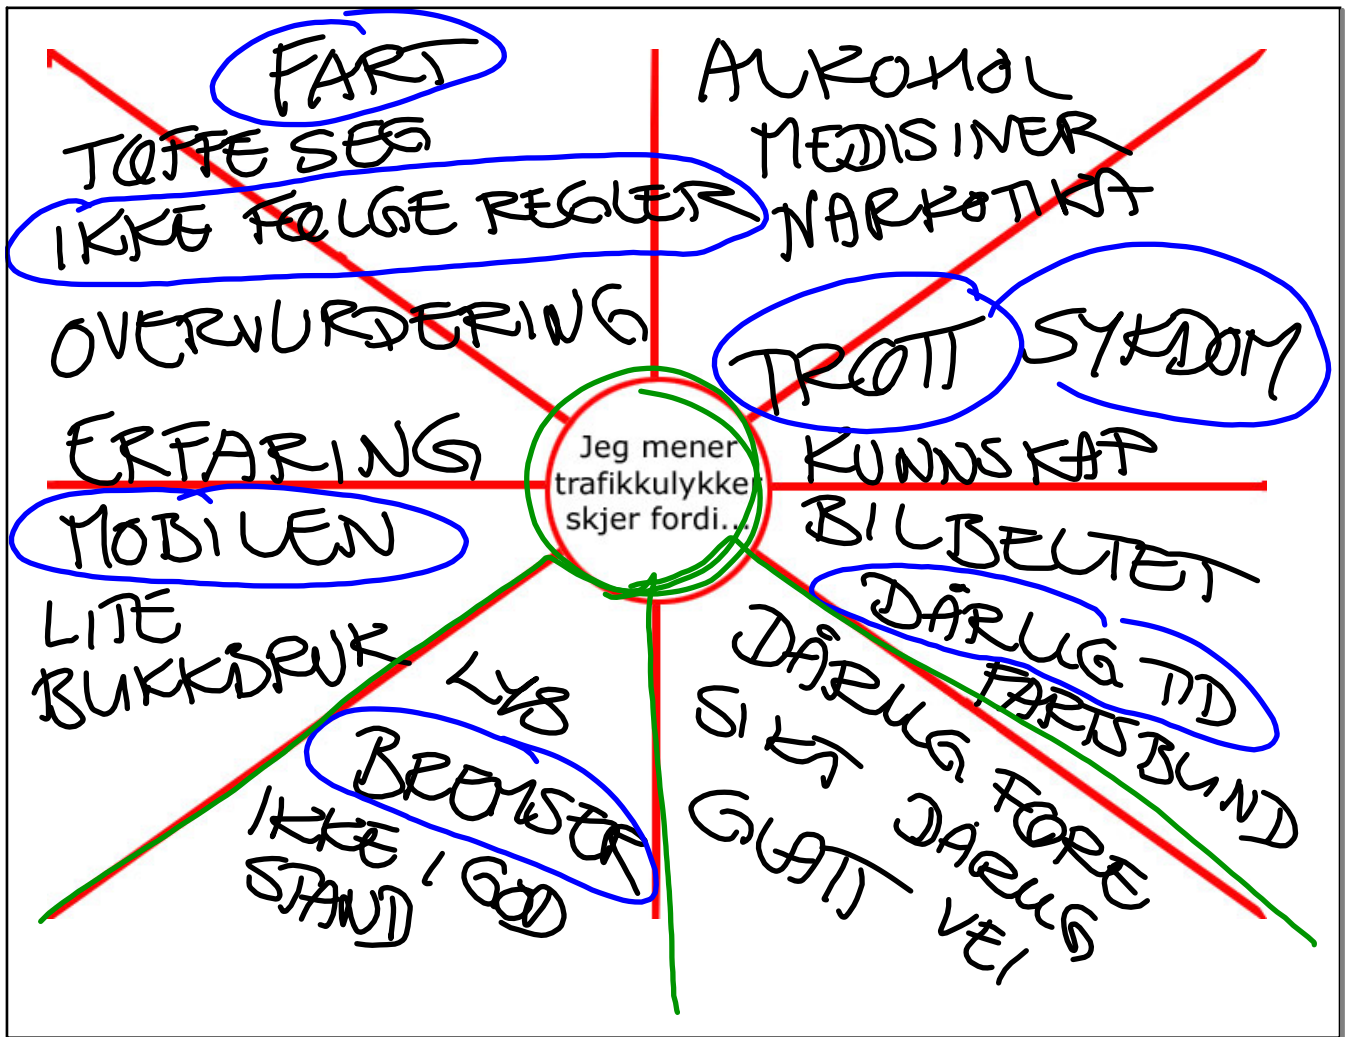 FART
TØFFE SEG
IKKE FØLGE REGLER
OVERVURDERING
ERFARING
MOBILEN
LITE
BLIKKBRUK
ALKOHOL
MEDISINER
NARKOTIKA
TRØTT
SYKDOM
KUNNSKAP
BILBELTET
DÅRLIG TID
FARTSBLIND
Jeg mener
trafikkulykker
skjer fordi...
LYS
BREMSER
IKKE I GOD
STAND
DÅRLIG FØRE
SIKT
DÅRLIG
VEI
GLATT